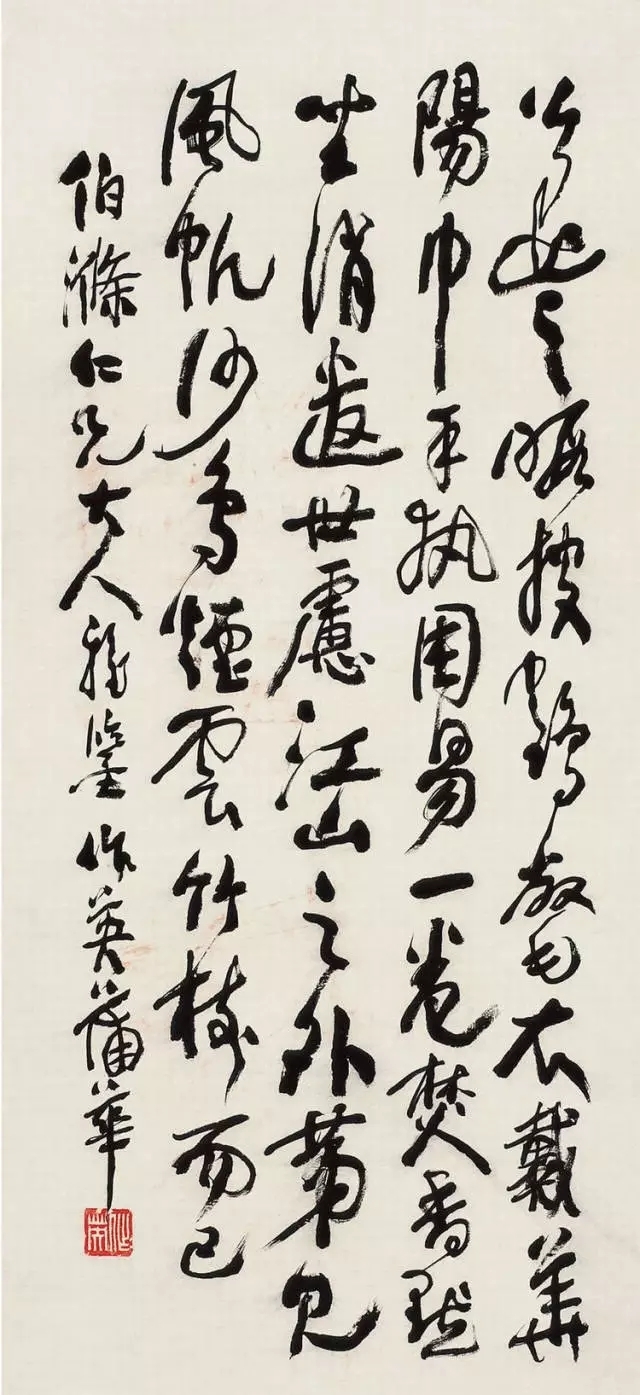 公退之暇披鶴氅衣戴華
陽巾手執周易一卷焚香默
坐消遣世慮江山之外第見
風帆沙鳥煙雲竹樹而已
伯滌仁兄大人雅鑒 作英蒲華